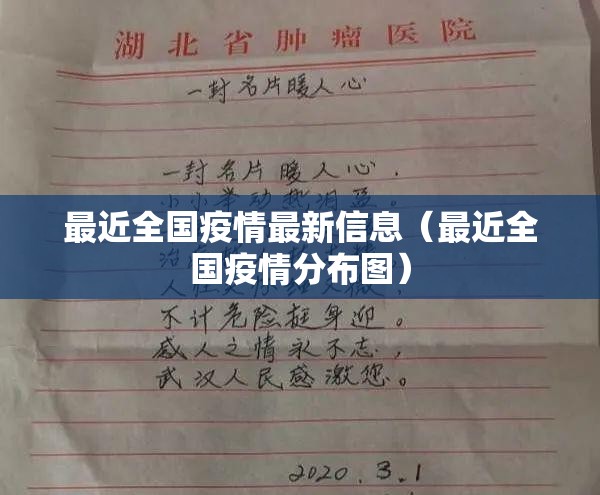 湖北省肿瘤医院
一封名片暖人心
一封名片暖人心,
小小举动热泪盈。
最近全国疫情最新信息（最近全
国疫情分布图）
不计危险挺身迎。
感人之情永不忘,
武汉人民感激您。
2020.3.1